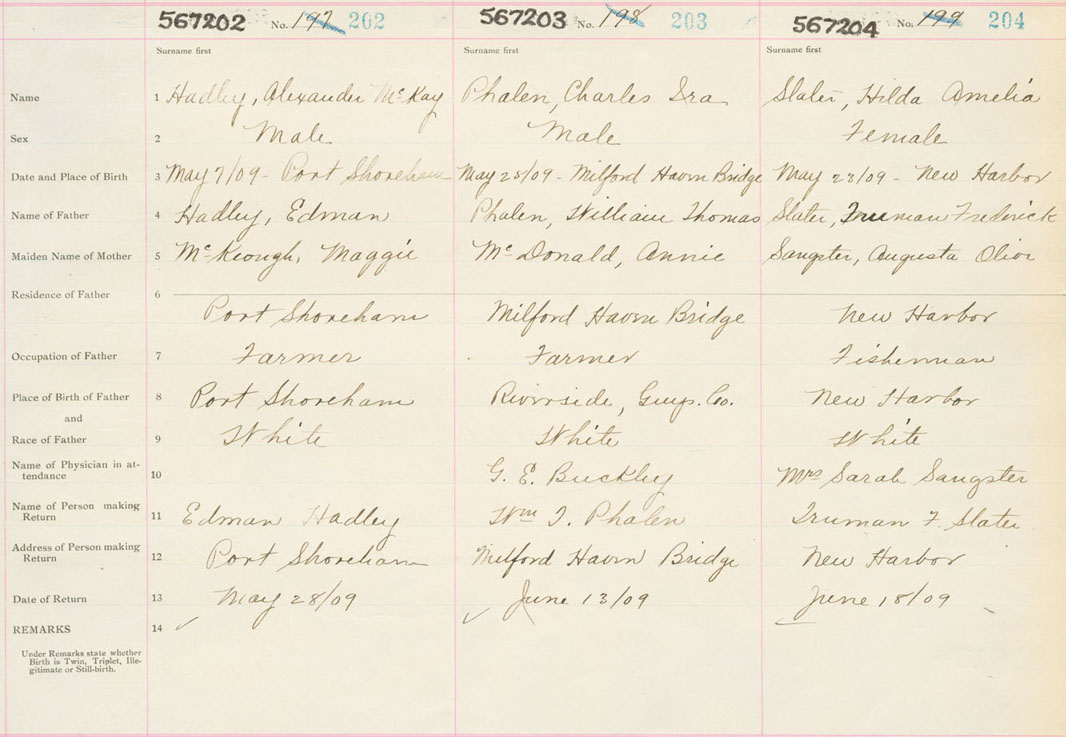 567202 No. 197 202 567203 No. 198 203 567204 No. 199 204
Surname first Surname first Surname first
Name 1 Hadley, Alexander McKay Phalen, Charles Ira Slater, Hilda Amelia
Sex 2 Male Male Female
Date and Place of Birth 3 May 7/09 - Port Shoreham May 28/09 - Milford Haven Bridge May 23/09 - New Harbor
Name of Father 4 Hadley, Edman Phalen, William Thomas Slater, Truman Frederick
Maiden Name of Mother 5 McKeough, Maggie McDonald, Annie Sangster, Augusta Olive
Residence of Father 6
Port Shoreham Milford Haven Bridge New Harbor
Occupation of Father 7 Farmer Farmer Fisherman
Place of Birth of Father 8 Port Shoreham Riverside, Guys. Co. New Harbor
and
Race of Father 9 White White White
Name of Physician in at-
tendance 10 G. E. Buckley Mrs Sarah Sangster
Name of Person making
Return 11 Edman Hadley Wm T. Phalen Truman F. Slater
Address of Person making
Return 12 Port Shoreham Milford Haven Bridge New Harbor
Date of Return 13 May 28/09 June 13/09 June 18/09
REMARKS 14
Under Remarks state whether
Birth is Twin, Triplet, Ille-
gitimate or Still-birth.